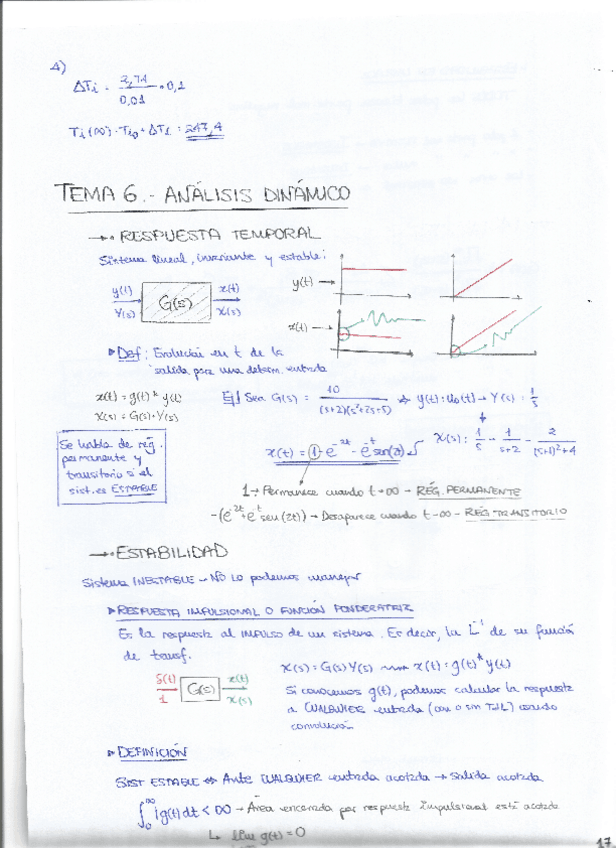 4)
ΔTi = 2,74 / 0,01 · 0,1
Ti(∞) = Ti0 + ΔTi = 247,4
TEMA 6.- ANÁLISIS DINÁMICO
→ RESPUESTA TEMPORAL
Sistema lineal, invariante y estable:
y(t) G(s) x(t) y(t) →
Y(s) X(s)
x(t) →
Def: Evolución en t de la
salida para una determ. entrada
x(t) = g(t) * y(t)
X(s) = G(s)·Y(s)
Ej/ Sea G(s) = 10 / (s+2)(s²+2s+5) ⇒ y(t) = u0(t) → Y(s) = 1/s
x(t) = 1 - e^-2t - e^-t sen(2t) X(s) = 1/s - 1/s+2 - 2/(s+1)²+4
Se habla de rég.
permanente y
transitorio si el
sist. es ESTABLE
1 → Permanece cuando t→∞ - RÉG. PERMANENTE
-(e^-2t + e^-t sen(2t)) → Desaparece cuando t→∞ - RÉG TRANSITORIO
→ ESTABILIDAD
Sistema INESTABLE → NO lo podemos manejar
RESPUESTA IMPULSIONAL O FUNCIÓN PONDERATRIZ
Es la respuesta al IMPULSO de un sistema. Es decir, la L^-1 de su función
de transf.
X(s) = G(s) Y(s) → x(t) = g(t) * y(t)
δ(t) G(s) x(t)
1 X(s)
Si conocemos g(t), podemos calcular la respuesta
a CUALQUIER entrada (con o sin TdL) usando
convolución
DEFINICIÓN
SIST ESTABLE ⇔ Ante CUALQUIER entrada acotada → Salida acotada
∫0^∞ |g(t)| dt < ∞ → Área encerrada por respuesta impulsional está acotada
↳ lim g(t) = 0
17